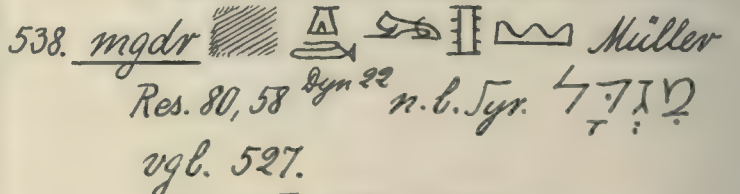 538. mgdr Müller
Res. 80, 58 Dyn 22 n. l. Syr. מִגְדָּל
vgl. 527.